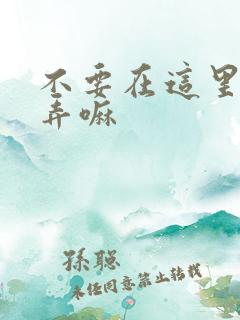 不要在這里
弄嘛
孫聪
未経同意禁止转载